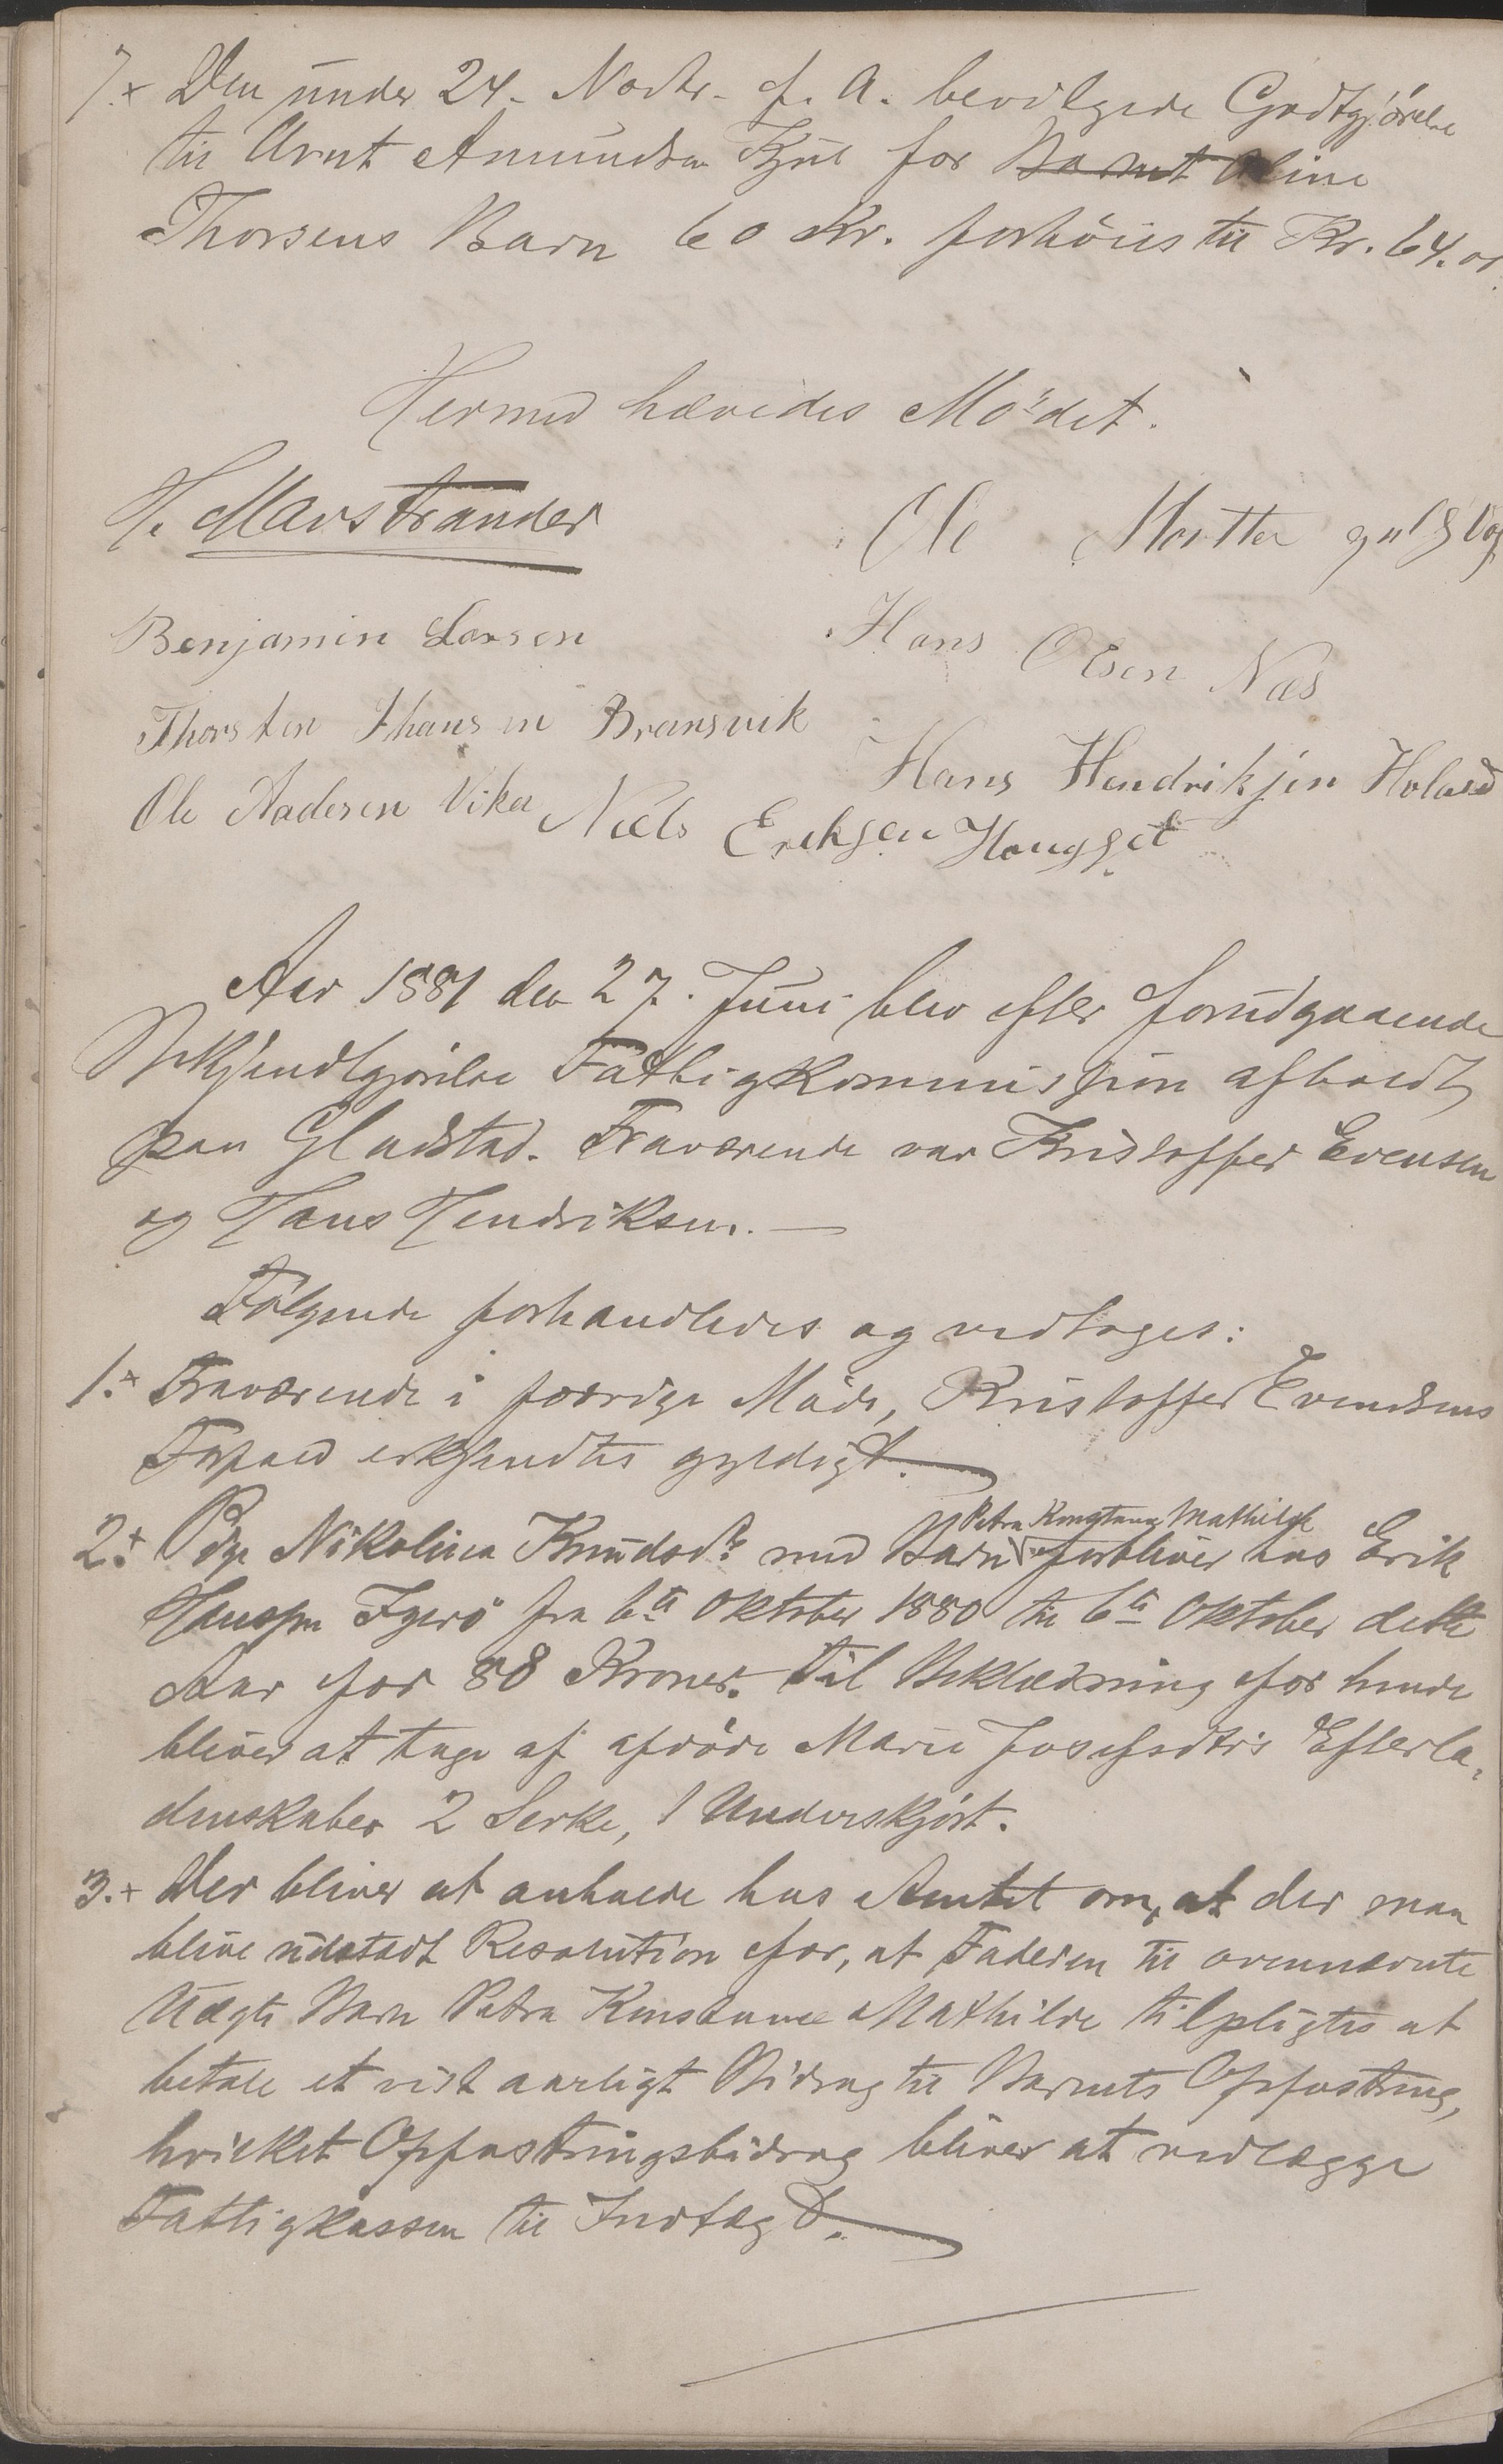 7.+ Den under 24. Novbr. f. A. bevilgede Godtgjørelse
til Arnt Amundsen Kjul for Barnet Oline
Thorsens Barn 60 Kr. forhöies til Kr. 64.00
Hermed hævedes Mödet.
H. Marstrander
Ole Mortten
Benjamin Larsen
Hans Olsen Næs
Thorsten Jhansen Brensvik
Hans Hendriksen Holand
Ole Aadesen Vika
Niels Eriksen Haugset
Aar 1881 den 27. Juni blev efter forudgaaende
Bekjendtgjörelse Fattigkommission afholdt
paa Gladstad. Fraværende var Kristoffer Evensen
og Hans Hendriksen. —
Fölgende forhandledes og vedtoges:
1.+ Fraværende i forrige Möde, Kristoffer Evendsens
Forfald erkjendtes gyldigt.
2.+ Pige Nikolina Knudsdtr med Barn Petra Konstance Mathilde forbliver hos Erik
Hanssen Igerö fra 6te Oktober 1880 til 6te Oktober dette
Aar for 88 Kroner. Til Beklædning for hende
bliver at tage af afdöde Marie Josefsdtrs Efterla-
denskaber 2 Serke, 1 Underskjört.
3.+ Der bliver at anholde hos Amtet om, at der maa
blive udstedt Resolution for, at Faderen til ovennævnte
Uægte Barn Petra Konstance Mathilde tilpligtes at
betale et vist aarligt Bidrag til Barnets Opfostring,
hvilket Opfostringsbidrag bliver at vedlægge
Fattigkassen til Indtægt.